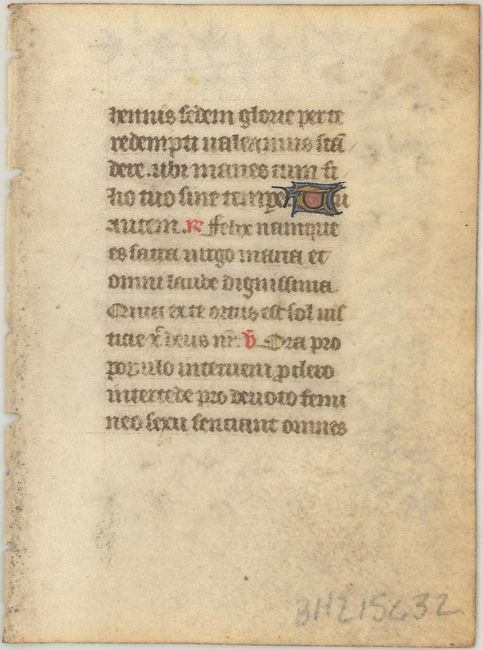 hennis sedem glorie per te
redempti ualeamus scā
dere. ubi manes cum fi
lio tuo sine tempore Tu
autem. R Felix namque
es sacra uirgo maria et
omni laude dignissima
Quia ex te ortus est sol ius
ticie xp̄s deus nr̄. V̄ Ora pro
populo interueni p clero
intercede pro deuoto femi
neo sexu senciant omnes
BH215632